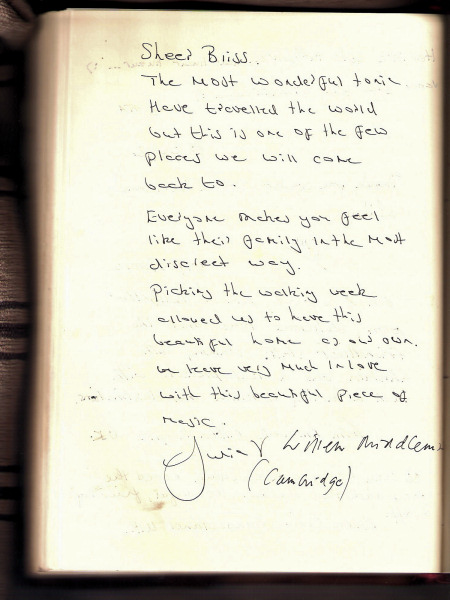 Sheer Bliss.
The most wonderful tonic
Have travelled the world
but this is one of the few
places we will come
back to.
Everyone makes you feel
like their family in the most
discreet way.
Picking the walking week
allowed us to have this
beautiful home as our own.
We leave very much in love
with this beautiful piece of
magic.
(Cambridge)